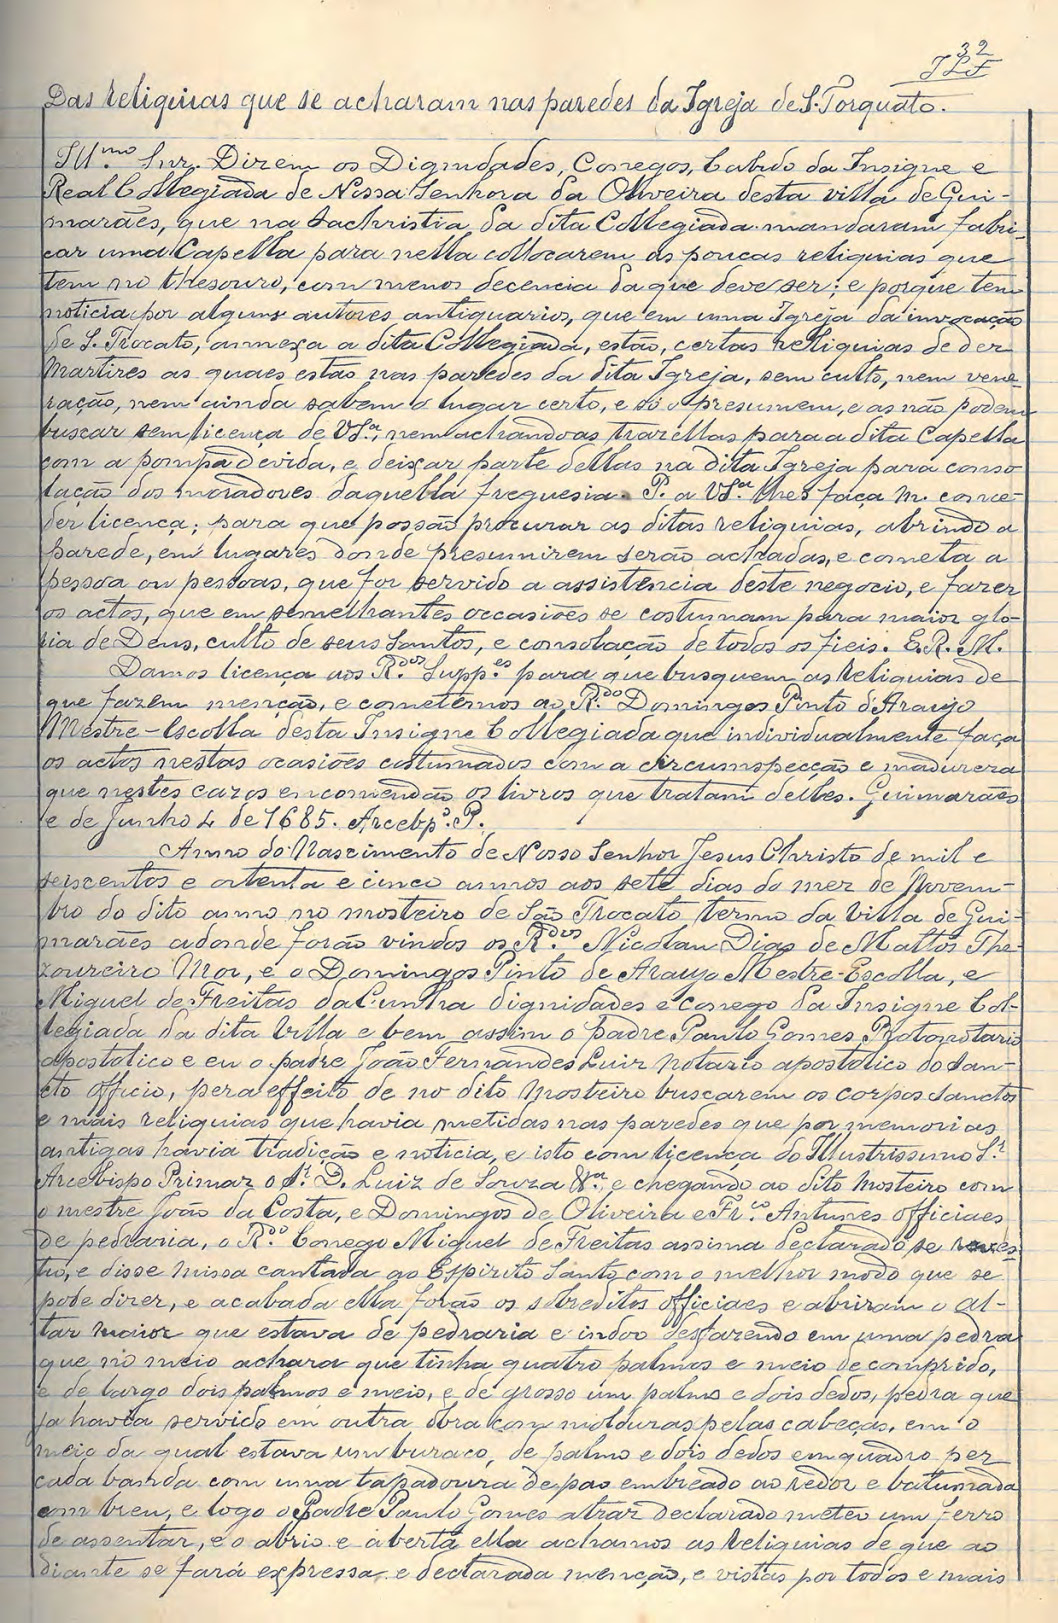 32
Das reliquias que se acharam nas paredes da Igreja de S. Torquato.
Ill.mo Snr. Dizem os Dignidades, Conegos, Cabido da Insigne e
Real Collegiada de Nossa Senhora da Oliveira desta villa de Gui-
marães, que na sachristia da dita Collegiada mandaram fabri-
car uma Capella para nella collocarem as poucas reliquias que
tem no thesouro, com menos decencia da que deve ser; e porque tem
noticia por alguns autores antiquarios, que em uma Igreja da invocação
de S. Trocato, annexa a dita Collegiada, estão, certas reliquias de dez
Martires as quaes estão nas paredes da dita Igreja, sem culto, nem vene-
ração, nem ainda sabem o lugar certo, e só o presumem, e as não podem
buscar sem licença de VS.a, nem achandoas trazellas para a dita Capella
com a pompa devida, e deixar parte dellas na dita Igreja para conso-
lação dos moradores daquella freguesia. P. a VS.a lhes faça m. conce-
der licença; para que possão procurar as ditas reliquias, abrindo a
parede, em lugares donde presumirem serão achadas, e cometa a
pessoa ou pessoas, que for servido a assistencia deste negocio, e fazer
os actos, que em semelhantes occasiões se costumam para maior glo-
ria de Deus, culto de seus santos, e consolação de todos os fieis. E. R. M.
Damos licença aos R.dos Supp.es para que busquem as reliquias de
que fazem menção, e cometemos ao R.do Domingos Pinto d'Araujo
Mestre-Escolla desta Insigne Collegiada que individualmente faça
os actos nestas ocasiões costumados com a circumspecção e madureza
que nestes cazos encomendão os livros que tratam delles. Guimarães
e de Junho 4 de 1685. Arcebp.o P.
Anno do Nascimento de Nosso Senhor Jesus Christo de mil e
seiscentos e oitenta e cinco annos aos sete dias do mez de Novem-
bro do dito anno no mosteiro de São Trocato termo da Villa de Gui-
marães adonde forão vindos os R.dos Nicolau Dias de Mattos The-
zoureiro Mor, e o Domingos Pinto de Araujo Mestre-Escolla, e
Miguel de Freitas da Cunha dignidades e conego da Insigne Col-
legiada da dita Villa e bem assim o padre Paulo Gomes Protonotario
apostolico e eu o padre João Fernandes Luiz notario apostolico do san-
cto officio, pera effeito de no dito Mosteiro buscarem os corpos sanctos
e mais reliquias que havia metidas nas paredes que por memorias
antigas havia tradição e noticia, e isto com licença do Illustrissimo S.r
Arcebispo Primaz o S.r D. Luiz de Souza &.a e chegando ao dito Mosteiro com
o mestre João da Costa, e Domingos de Oliveira e Fr.co Antunes officiaes
de pedraria, o R.do Conego Miguel de Freitas assima declarado, se reves-
tio, e disse missa cantada ao Espirito Santo com o melhor modo que se
pode dizer, e acabada ella forão os sobreditos officiaes e abriram o al-
tar maior que estava de pedraria e indoo desfazendo em uma pedra
que no meio achara que tinha quatro palmos e meio de comprido,
e de largo dois palmos e meio, e de grosso um palmo e dois dedos, pedra que
ja havia servido em outra obra com molduras pelas cabeças, em o
meio da qual estava um buraco, de palmo e dois dedos em quadro per
cada banda com uma tapadoura de pao embreado ao redor e batumada
com breu, e logo o Padre Paulo Gomes atraz declarado meteo um ferro
de assentar, e o abrio e aberta ella achamos as reliquias de que ao
diante se fará expressa, e declarada menção, e vistas por todos e mais